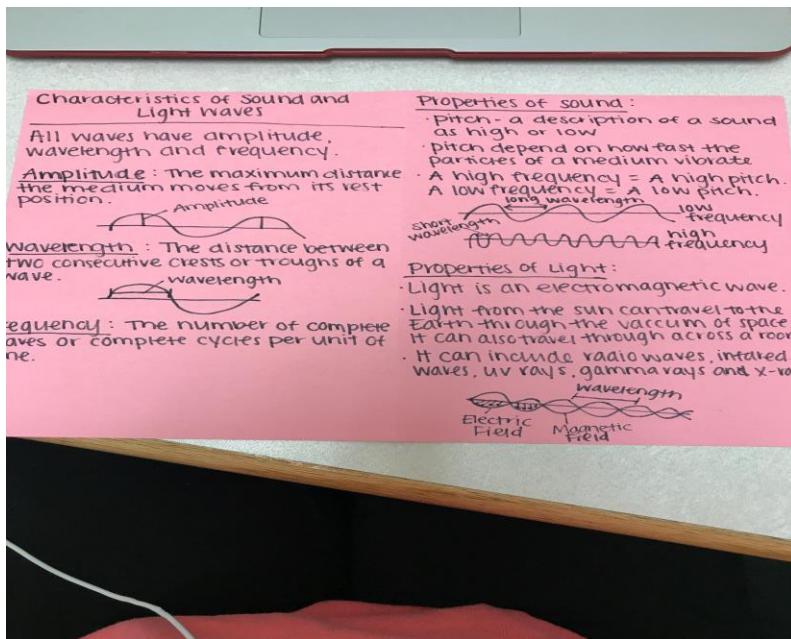 Characteristics of Sound and
Light Waves
All waves have amplitude,
wavelength and frequency.
Amplitude: The maximum distance
the medium moves from its rest
position.
Amplitude
wavelength: The distance between
two consecutive crests or troughs of a
wave.
wavelength
equency: The number of complete
aves or complete cycles per unit of
me.
Properties of sound:
· pitch - a description of a sound
as high or low
· pitch depend on how fast the
particles of a medium vibrate
· A high frequency = A high pitch.
A low frequency = A low pitch.
long wavelength
low
frequency
short
wavelength
high
frequency
Properties of Light:
· Light is an electromagnetic wave.
· Light from the sun can travel to the
Earth through the vaccum of space
It can also travel through across a room
· It can include radio waves, infared
waves, uv rays, gamma rays and x-ra
wavelength
Electric
Field
Magnetic
Field